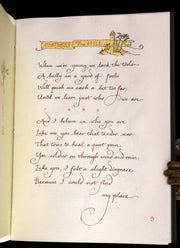 When we're young we lack the tools
A bully in a yard of fools
Will push us each a bit too far
Until we learn just who we are
And I believe in who you are
Like me, you bear that tender scar
That tries to heal a quiet pain,
You soldier on through wind and rain;
Like you, I felt a slight disgrace
Because I could not find
my place.